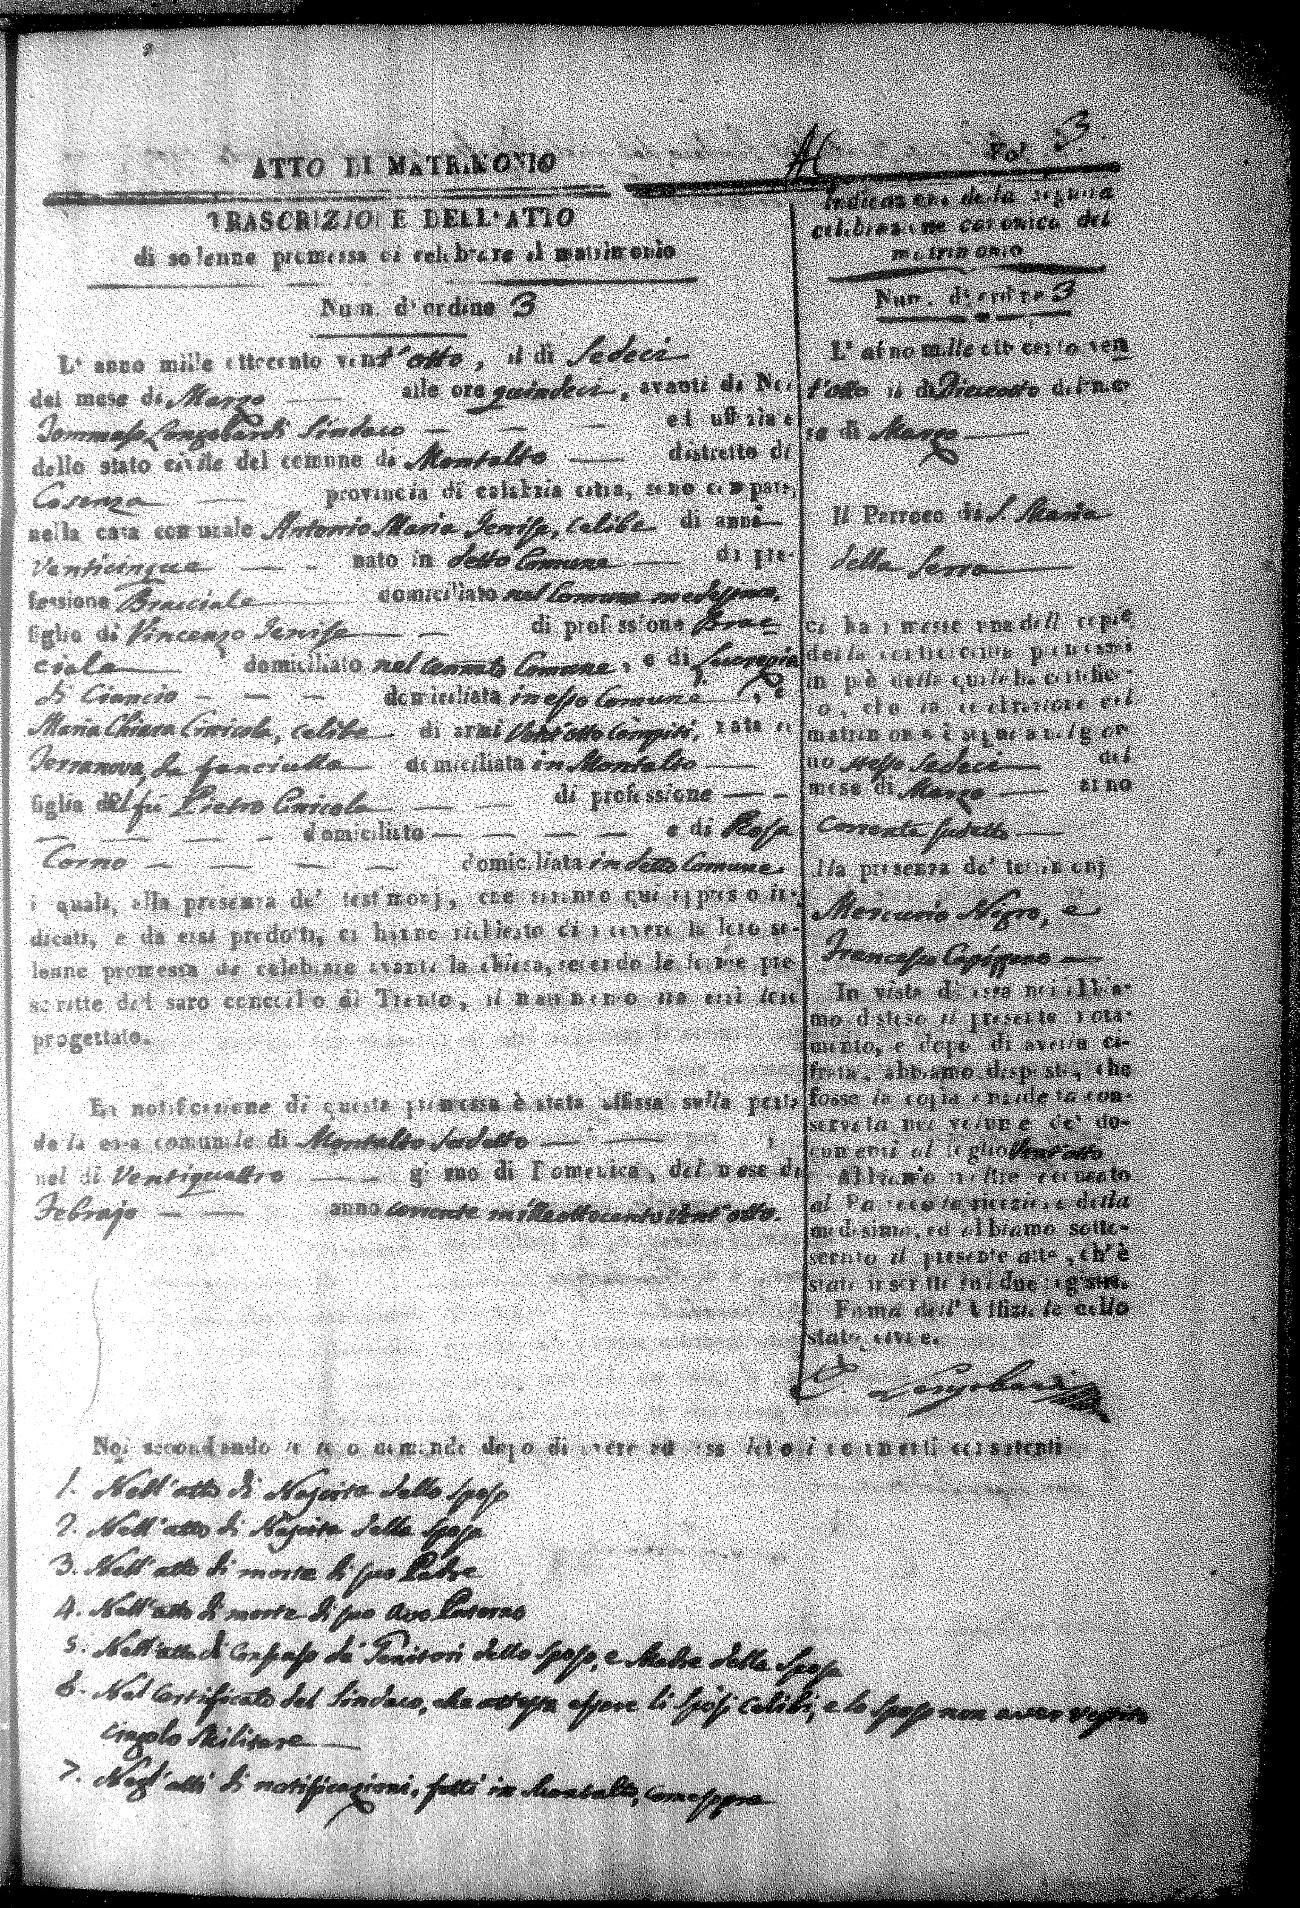 Fol. 3
ATTO DI MATRIMONIO
TRASCRIZIONE DELL'ATTO
di solenne promessa di celebrare il matrimonio
Num. d'ordine 3
L' anno mille ottocento vent'otto, il dì Sedeci
del mese di Marzo alle ore quindeci, avanti di Noi
Tommaso Longobardi Sindaco ed uffiziale
dello stato civile del comune di Montalto distretto di
Cosenza provincia di calabria citra, sono comparsi
nella casa comunale Antonio Maria Jenise, celibe di anni
Venticinque nato in detto Comune di pro-
fessione Bracciale domiciliato nel Comune medesimo,
figlio di Vincenzo Jenise di professione Brac=
ciale domiciliato nel cennato Comune, e di Lucrezia
di Ciancio domiciliata in esso Comune, e
Maria Chiara , celibe di anni Vent'otto compiti, nata in
Terranova, da fanciulla domiciliata in Montalto
figlia del fù Pietro di professione
domiciliato e di Rosa
Corno domiciliata in detto Comune,
i quali, alla presenza de' testimonj, che saranno qui appresso in-
dicati, e da essi prodotti, ci hanno richiesto di ricevere la loro so-
lenne promessa di celebrare avanti la chiesa, secondo le forme pre-
scritte dal sacro concilio di Trento, il matrimonio tra essi loro
progettato.
La notificazione di questa promessa è stata affissa sulla porta
della casa comunale di Montalto sudetto
nel dì Ventiquattro giorno di Domenica, del mese di
Febrajo anno corrente milleottocentovent'otto.
Indicazione della seguita
celebrazione canonica del
matrimonio
Num. d'ordine 3
L' anno mille ottocento ven
t'otto il dì Dieciotto del me-
se di Marzo
Il Parroco di S. Maria
della Serra
ci ha rimesse una delle copie
della certificazione promessa
in piè della quale ha certifica-
to, che la celebrazione del
matrimonio è seguita nel gior-
no stesso Sedeci del
mese di Marzo anno
corrente sudetto
Alla presenza de' testimonj
Mercurio Negro, e
Francesco
In vista di essa noi abbia-
mo disteso il presente nota-
mento, e dopo di averla ci-
frata, abbiamo disposto, che
fosse la copia anzidetta con-
servata nel volume de' do-
cumenti al foglio Vent'otto
Abbiamo inoltre accusato
al Parroco la ricezione della
medesima, ed abbiamo sotto-
scritto il presente atto, ch'è
stato inscritto sui due registri.
Firma dell' Uffiziale dello
stato civile.
Longobardi
Noi secondando le loro domande dopo di avere ad essi letto i documenti consistenti
1. Nell'atto di Nascita dello sposo
2. Nell'atto di Nascita della sposa
3. Nell'atto di morte di suo Padre
4. Nell'atto di morte di suo Avo Paterno
5. Nell'atto di Consenso de' Genitori dello Sposo, e Madre della Sposa
6. Nel Certificato del Sindaco, che attesta essere li Sposi celibi, e lo Sposo non aver vestito
cingolo Militare
7. Negl'atti di notificazioni, fatti in Montalto, come sopra